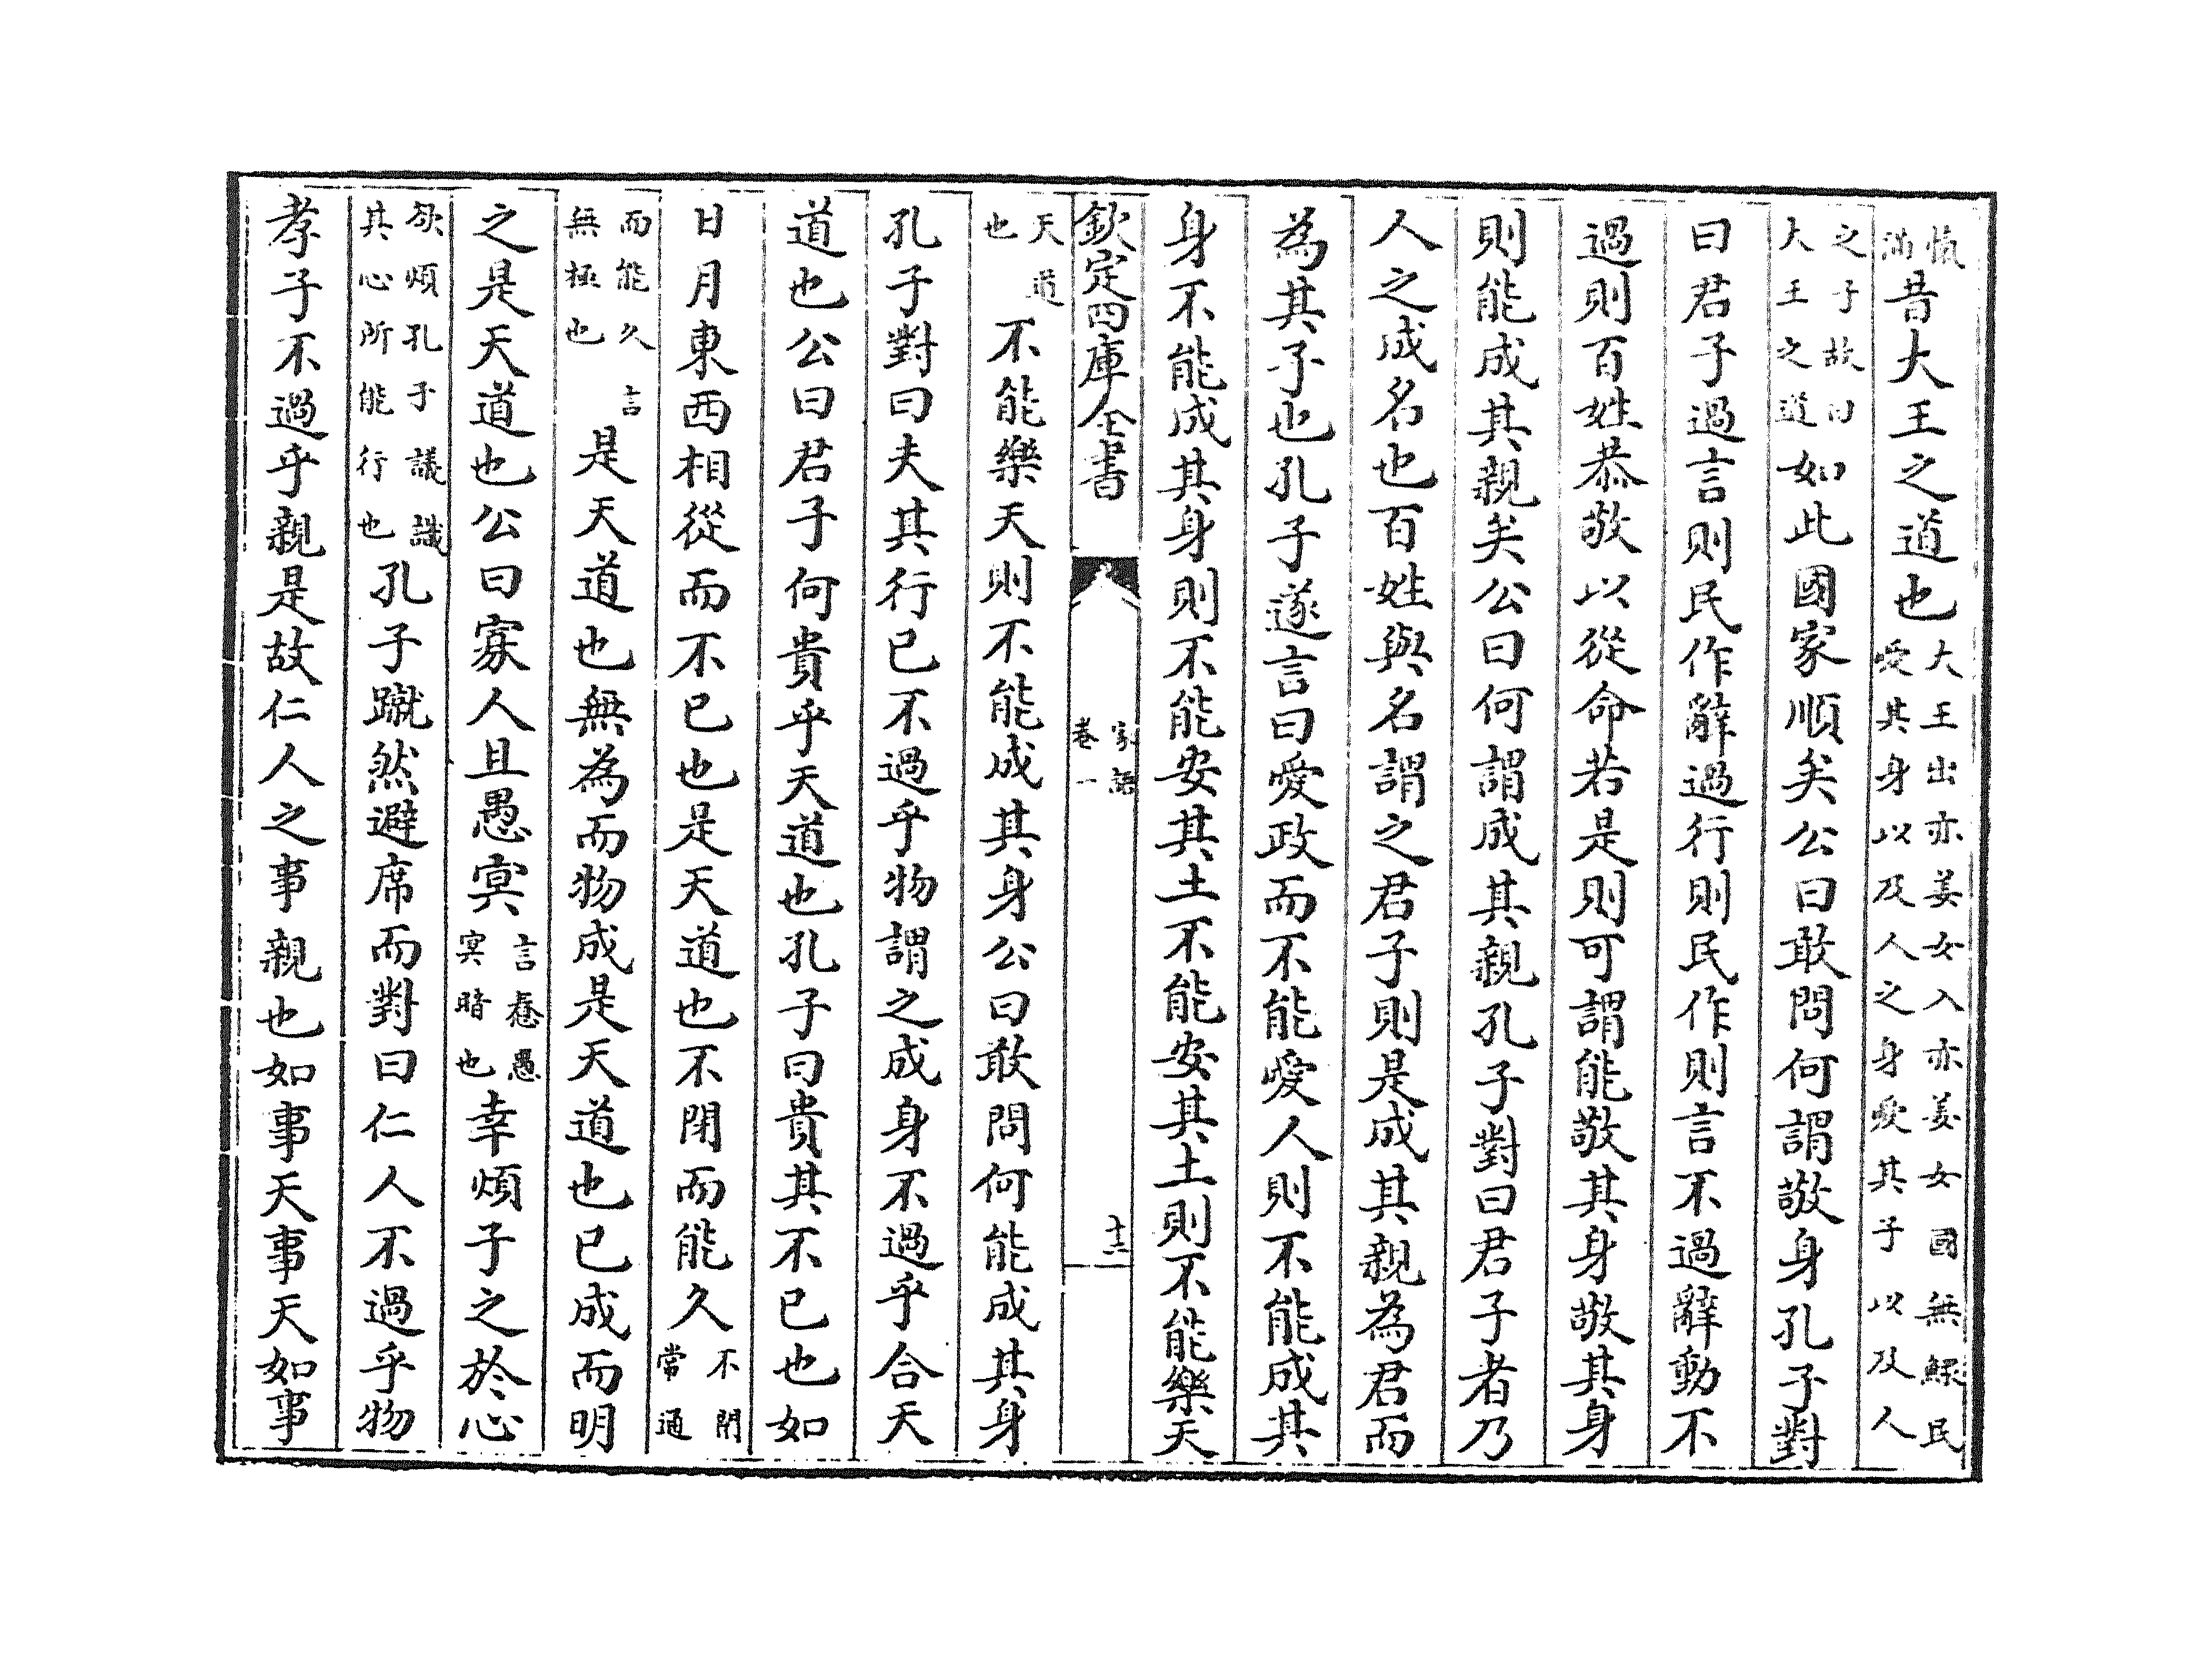 愾滿昔大王之道也大王出亦姜女入亦姜女國無鰥民愛其身以及人之身愛其子以及人
之子故曰大王之道如此國家順矣公曰敢問何謂敬身孔子對
曰君子過言則民作辭過行則民作則言不過辭動不
過則百姓恭敬以從命若是則可謂能敬其身敬其身
則能成其親矣公曰何謂成其親孔子對曰君子者乃
人之成名也百姓與名謂之君子則是成其親為君而
為其子也孔子遂言曰愛政而不能愛人則不能成其
身不能成其身則不能安其土不能安其土則不能樂天
欽定四庫全書 家語卷一 十三
天道也不能樂天則不能成其身公曰敢問何能成其身
孔子對曰夫其行已不過乎物謂之成身不過乎合天
道也公曰君子何貴乎天道也孔子曰貴其不已也如
日月東西相從而不已也是天道也不閉而能久不閉常通
而能久言無極也是天道也無為而物成是天道也已成而明
之是天道也公曰寡人且愚冥言惷愚冥暗也幸煩子之於心
欲煩孔子議識其心所能行也孔子蹴然避席而對曰仁人不過乎物
孝子不過乎親是故仁人之事親也如事天事天如事